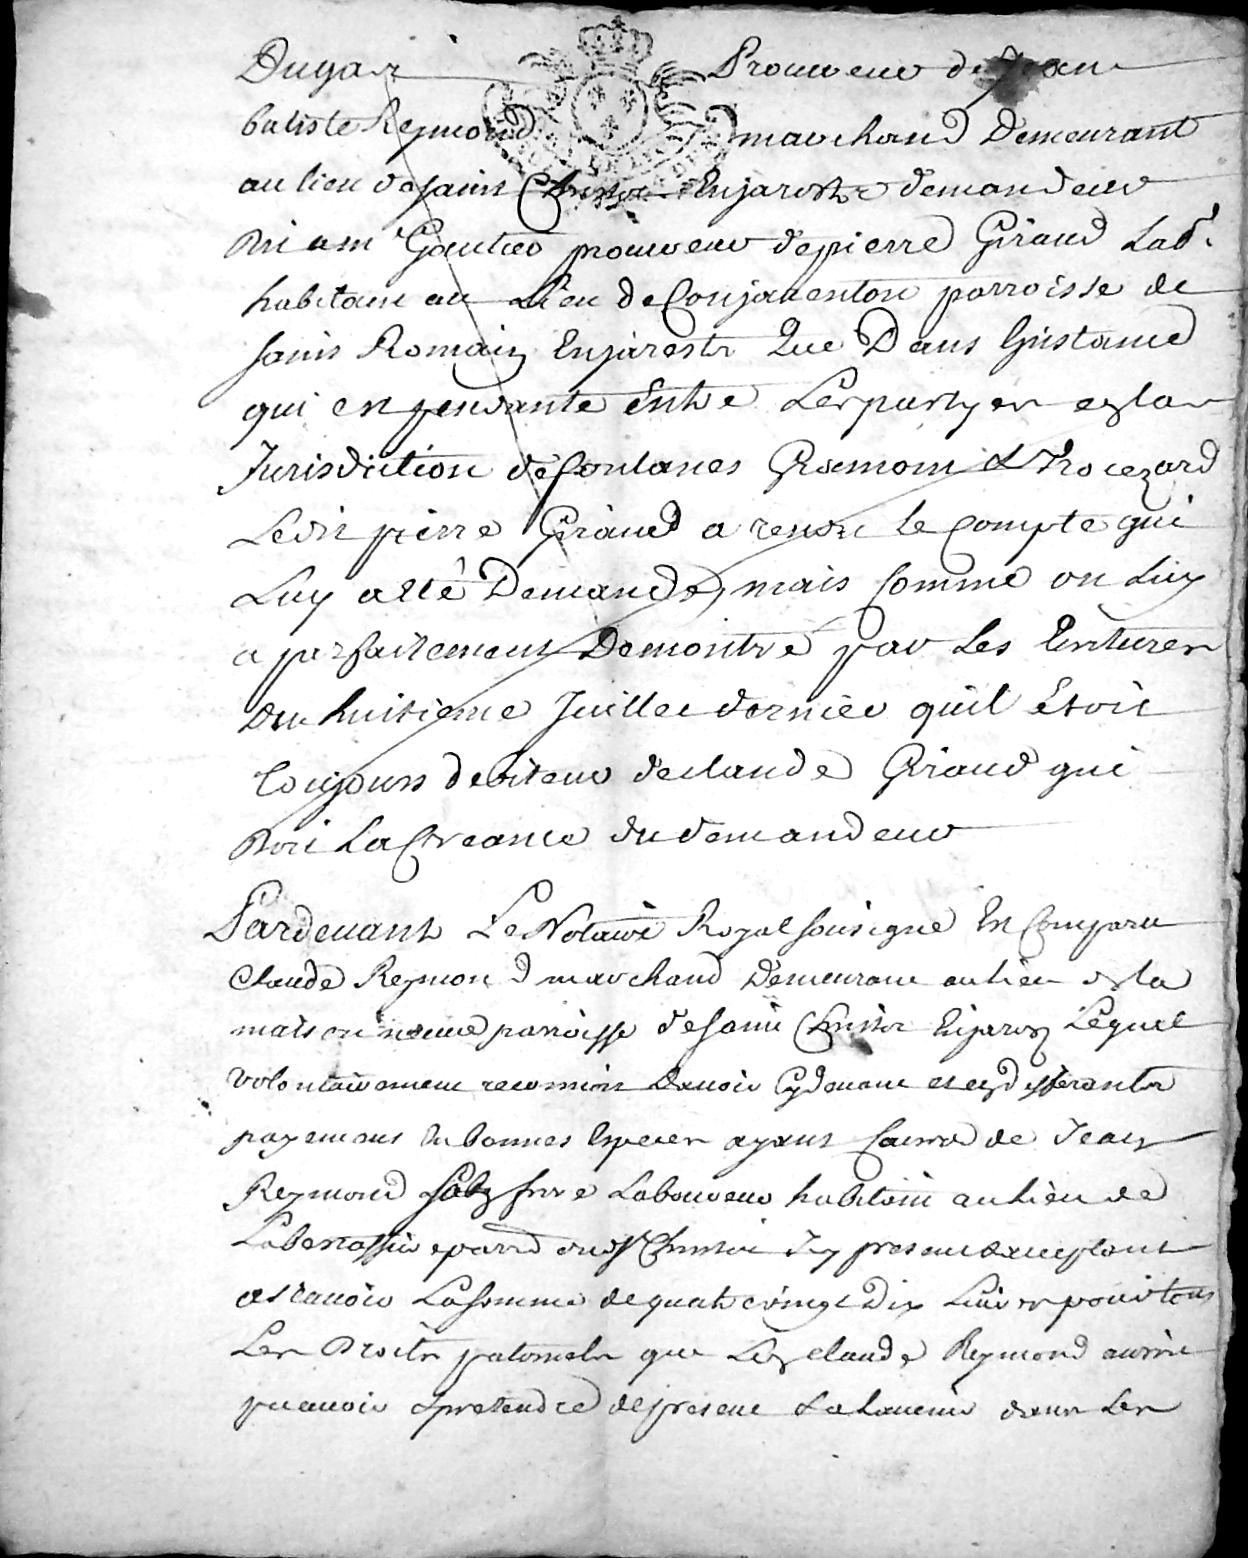 Dugas Procureur de Jean
batiste Reymond marchand Demeurant
au lieu de saint Christo Enjarest demandeur
Dit a me Gautier procureur de pierre Giraud Lab.r
habitant au Lieu de Conjaventon parroisse de
saint Romain Enjarests Que Dans Linstance
qui est pendante Entre Les partyes en la
Jurisdiction de fontanes Gramont &
Ledit pierre Giraud a rendu le Compte qui
Luy a ete Demandé, mais Comme on Luy
a parfaitement Demontré par Les Ecritures
du huitieme Juillet dernier quil Etoit
toujours debiteur de claude Giraud qui
Doit La Creance du demandeur
Pardevant Le Notaire Royal sousigné Est Comparu
Claude Reymond marchand Demeurant au lieu de la
maison neuve parroisse de saint Christo Enjarez Lequel
volontairement reconnoit davoir Cy devant et en differants
payements En bonnes Especes ayant Cours de Jean
Reymond son frere Laboureur habitant au lieu de
parr dud St Christo Icy present & acceptant
a scavoir La somme de quatre vingt Dix Livres pour tous
Les Droits paternels que Led claude Reymond auroit
pu avoir & pretendre de present & a Lavenir dans Les